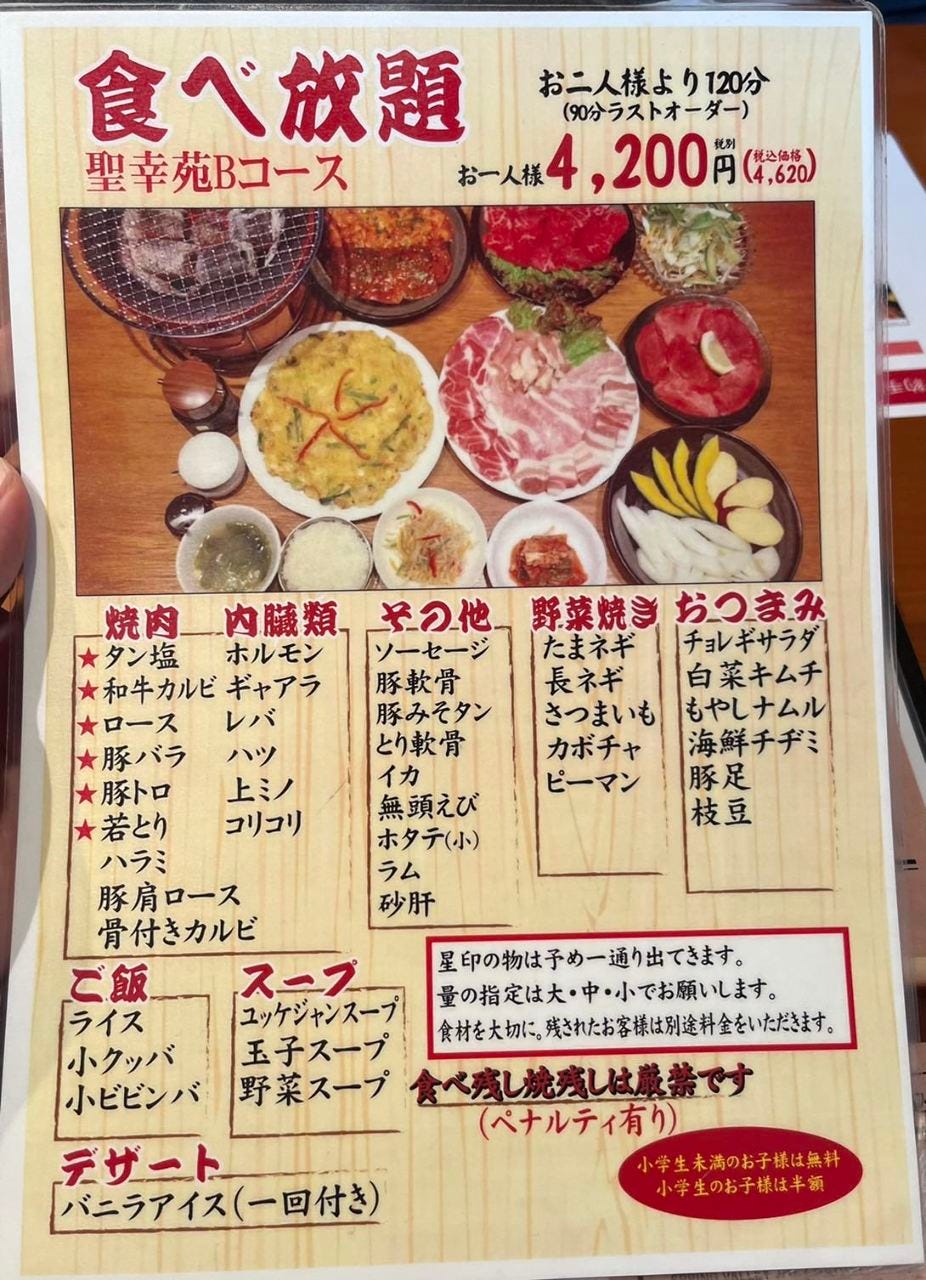 食べ放題
聖幸苑Bコース
お二人様より120分
(90分ラストオーダー)
お一人様4,200円 税別 (税込価格 4,620)
焼肉
★タン塩
★和牛カルビ
★ロース
★豚バラ
★豚トロ
★若とり
ハラミ
豚肩ロース
骨付きカルビ
内臓類
ホルモン
ギャアラ
レバ
ハツ
上ミノ
コリコリ
その他
ソーセージ
豚軟骨
豚みそタン
とり軟骨
イカ
無頭えび
ホタテ(小)
ラム
砂肝
野菜焼き
たまネギ
長ネギ
さつまいも
カボチャ
ピーマン
おつまみ
チョレギサラダ
白菜キムチ
もやしナムル
海鮮チヂミ
豚足
枝豆
ご飯
ライス
小クッパ
小ビビンバ
スープ
ユッケジャンスープ
玉子スープ
野菜スープ
デザート
バニラアイス(一回付き)
星印の物は予め一通り出てきます。
量の指定は大・中・小でお願いします。
食材を大切に。残されたお客様は別途料金をいただきます。
食べ残し焼残しは厳禁です
(ペナルティ有り)
小学生未満のお子様は無料
小学生のお子様は半額